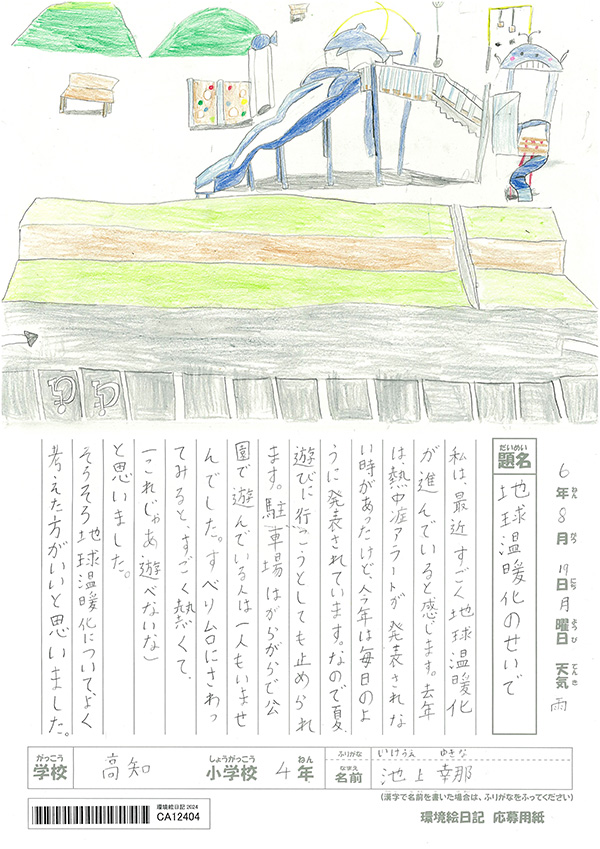 6年8月19日月曜日 天気 雨
ねん がつ にち ようび てんき
だいめい
題名
地球温暖化のせいで
私は、最近すごく地球温暖化
が進んでいると感じます。去年
は熱中症アラートが発表されな
い時があったけど、今年は毎日のよ
うに発表されています。なので夏、
遊びに行こうとしても止められ
ます。駐車場はがらがらで公
園で遊んでいる人は一人もいませ
んでした。すべり台にさわっ
てみると、すごく熱くて、
「これじゃあ遊べないな」
と思いました。
そろそろ地球温暖化について、よく
考えた方がいいと思いました。
がっこう
学校
高知
しょうがっこう
小学校
4
ねん
年
ふりがな
いけうえ ゆきな
なまえ
名前
池上幸那
(漢字で名前を書いた場合は、ふりがなをふってください)
環境絵日記2024
CA12404
環境絵日記 応募用紙